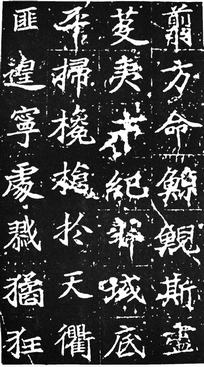 翦方命鯨鯢斯盡
芟夷紀域底
平掃欃槍於天衢
匪遑寧處戮獝狂